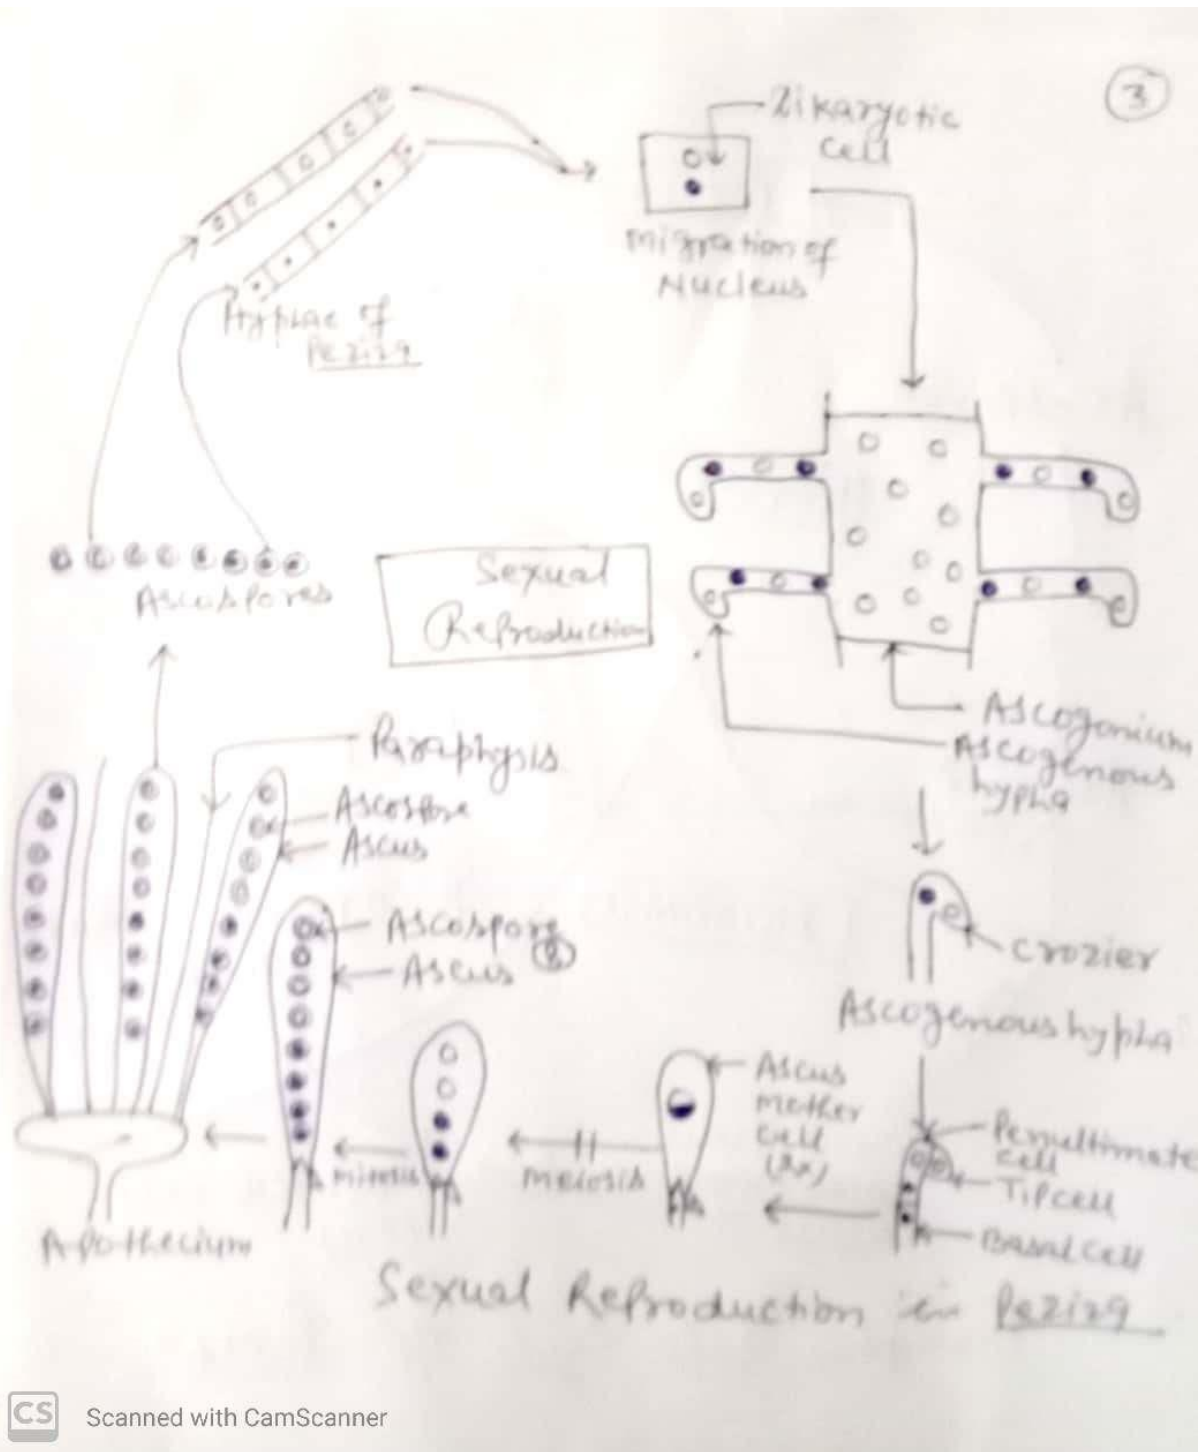 3
Zikaryotic
cell
migration of
Nucleus
Hyphae of
Peziza
Ascospores
Sexual
Reproduction
Ascogonium
Ascogenous
hypha
Paraphysis
Ascospore
Ascus
Ascospore
8
Ascus
Crozier
Ascogenous hypha
Penultimate
cell
Tip cell
Basal cell
Ascus
mother
cell
(2x)
meiosis
mitosis
Apothecium
Sexual Reproduction in Peziza
CS
Scanned with CamScanner